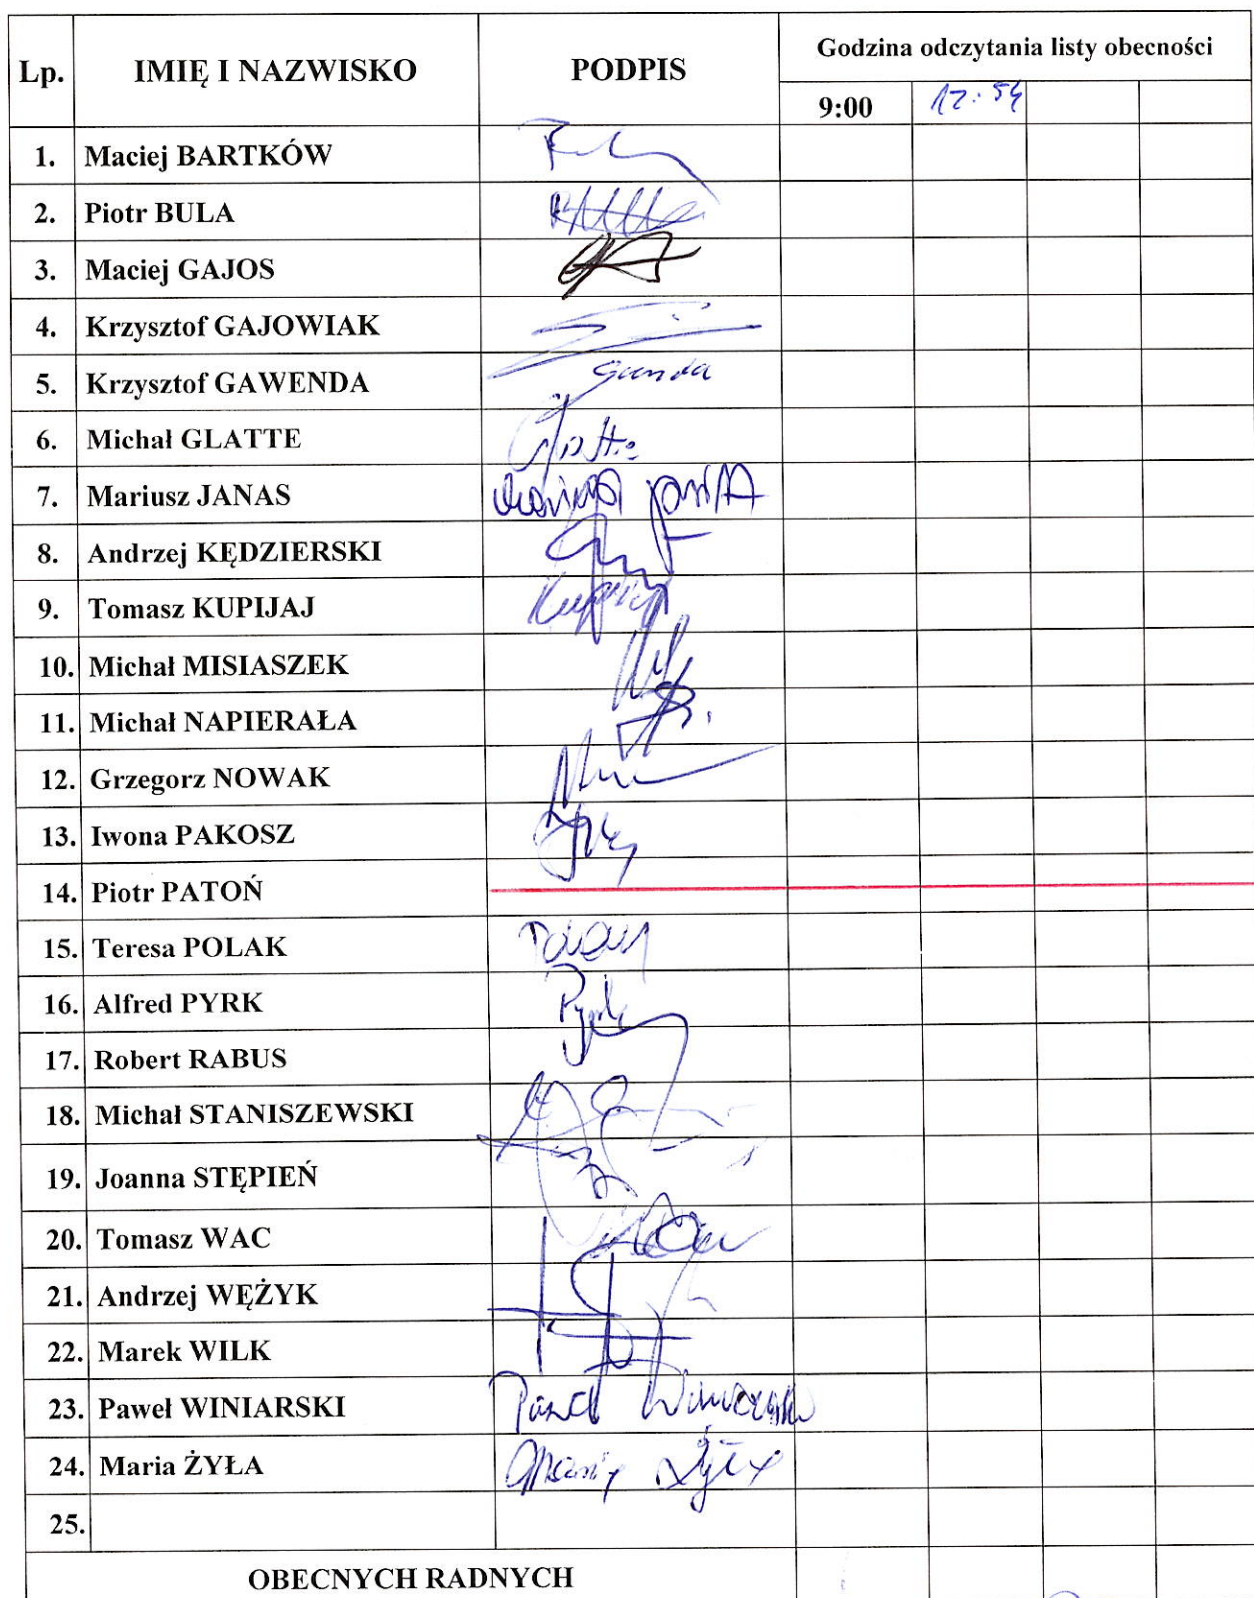 Lp. IMIĘ I NAZWISKO PODPIS Godzina odczytania listy obecności
9:00 12:54
1. Maciej BARTKÓW
2. Piotr BULA
3. Maciej GAJOS
4. Krzysztof GAJOWIAK
5. Krzysztof GAWENDA
6. Michał GLATTE
7. Mariusz JANAS
8. Andrzej KĘDZIERSKI
9. Tomasz KUPIJAJ
10. Michał MISIASZEK
11. Michał NAPIERAŁA
12. Grzegorz NOWAK
13. Iwona PAKOSZ
14. Piotr PATOŃ
15. Teresa POLAK
16. Alfred PYRK
17. Robert RABUS
18. Michał STANISZEWSKI
19. Joanna STĘPIEŃ
20. Tomasz WAC
21. Andrzej WĘŻYK
22. Marek WILK
23. Paweł WINIARSKI Paweł Winiarski
24. Maria ŻYŁA Maria Żyła
25.
OBECNYCH RADNYCH